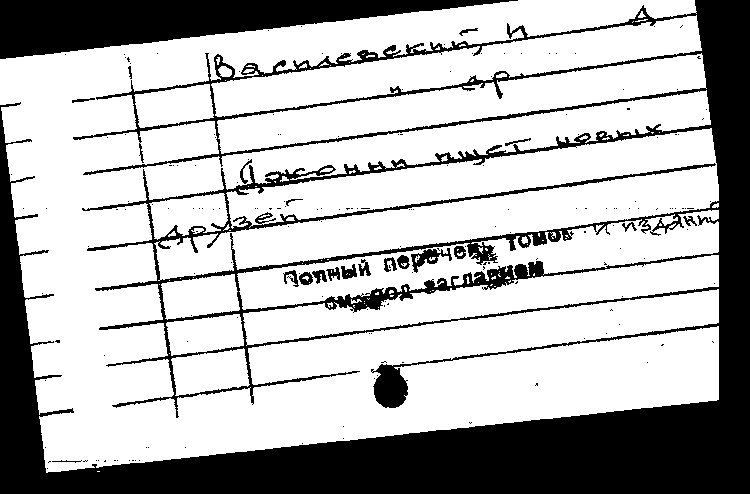 Василевский, И Д
и др.
Джонни ищет новых
друзей
Полный перечень томов и изданий
см. под заглавием